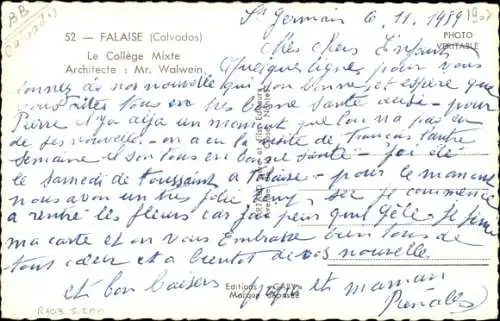 BB
Calvados
52 — FALAISE (Calvados)
Le Collège Mixte
Architecte : Mr. Walwein
St Germain 6.11.1989
1907
PHOTO
VERITABLE
Chers chers Enfants
Quelques lignes pour vous
donnez de nos nouvelle qui son bonne et espère que
vous êtes tous en très bonne santé aussi - pour
Pierre il y a déjà un moment que l'on n'a pas eu
de ses nouvelle - on a eu la visite de français l'autre
semaine il son tous en bonne santé - j'ai été
le samedi de toussaint a Falaise - pour le moment
nous avon un très jolie temp, je commence
a rentré les fleurs car j'ai peur qu'il gèle. je fini
ma carte et on vous Embrasse bien tous de
tous cœur et a bientot de vos nouvelle
et bon baisers papa et maman
Editions GABY